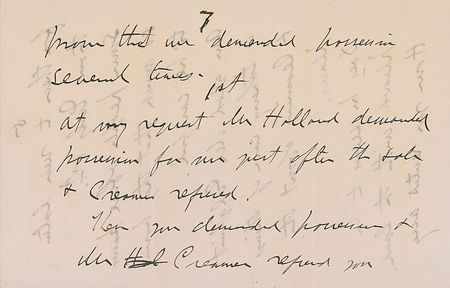 7
from that we demanded possession
several times.
1st
at my request Mr Holland demanded
possession for me just after the sale
& Creamer refused.
Then you demanded possession &
Mr Creamer refused you